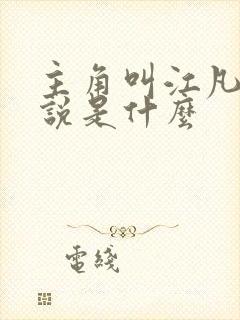 主角叫江凡
說是什麼
電綫